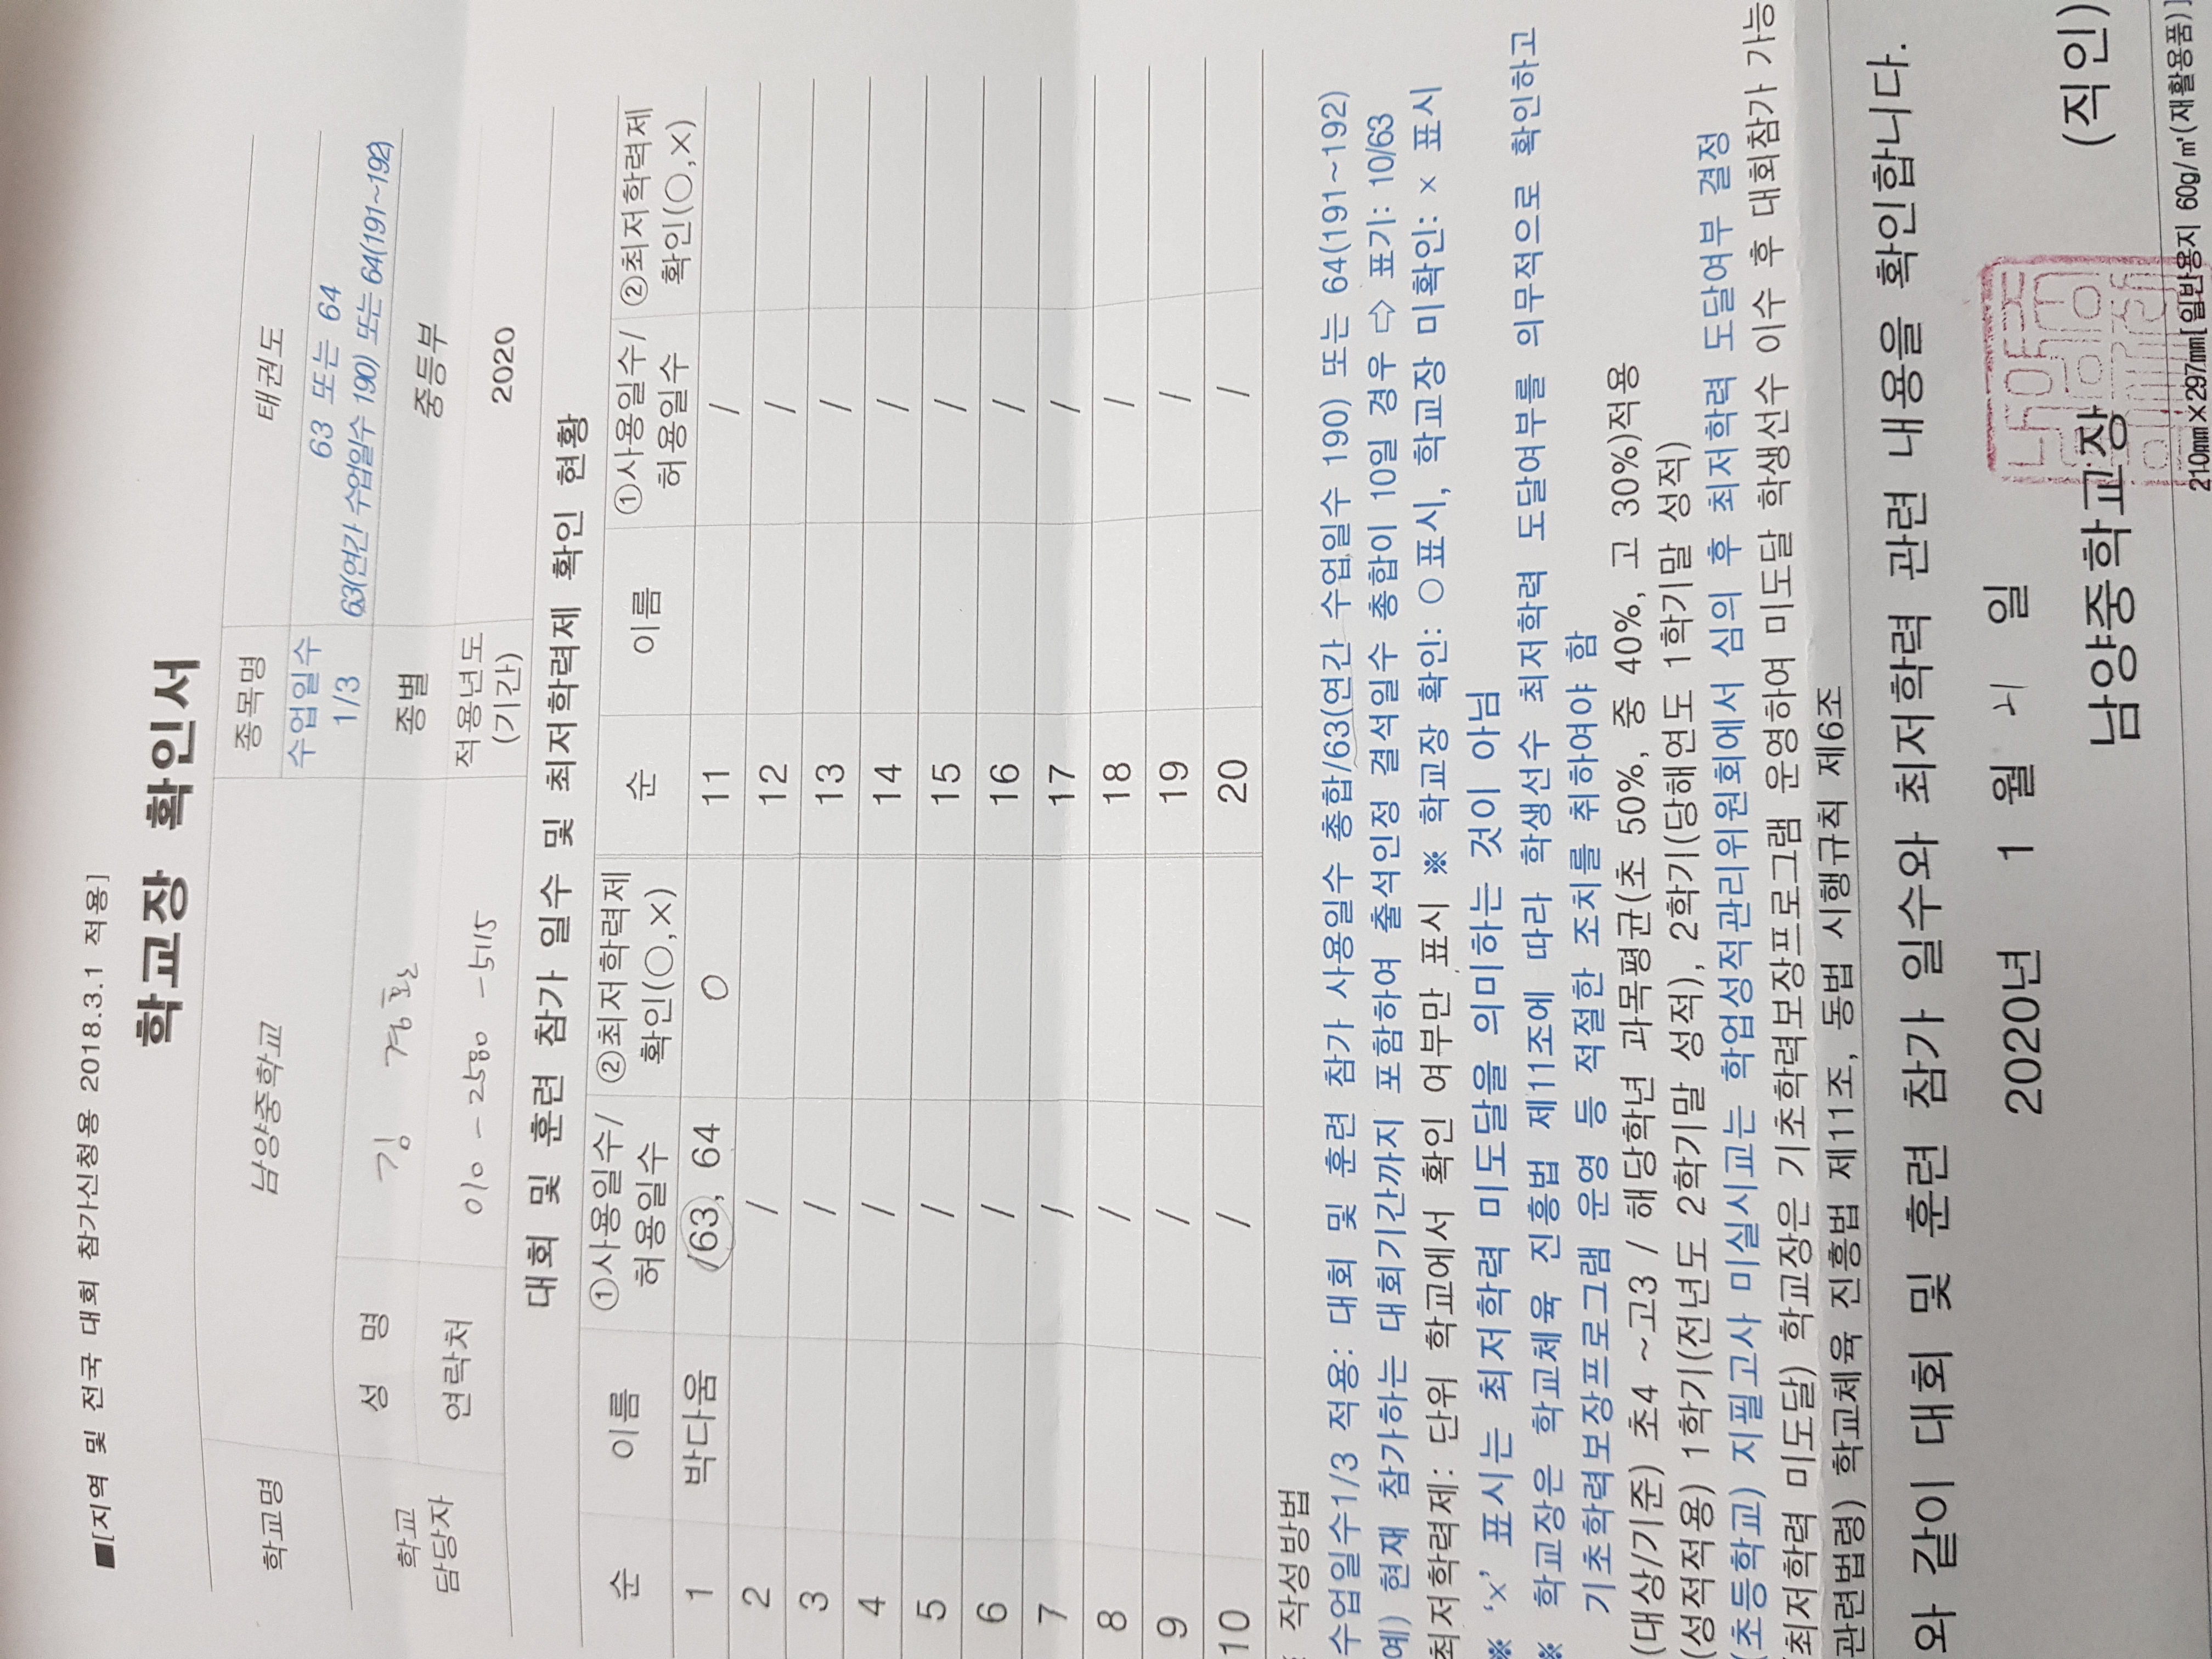 ■[지역 및 전국 대회 참가신청용 2018.3.1 적용]
학교장 확인서
학교명 남양중학교 종목명 태권도
수업일수 1/3 63 또는 64
63(연간 수업일수 190) 또는 64(191~192)
학교 담당자 성 명 김 경환 종별 중등부
연락처 010-2580-5115 적용년도 (기간) 2020
대회 및 훈련 참가 일수 및 최저학력제 확인 현황
순 이름 ①사용일수/허용일수 ②최저학력제 확인(○,×) 순 이름 ①사용일수/허용일수 ②최저학력제 확인(○,×)
1 박다움 /63, 64 ○ 11 /
2 / 12 /
3 / 13 /
4 / 14 /
5 / 15 /
6 / 16 /
7 / 17 /
8 / 18 /
9 / 19 /
10 / 20 /
작성방법
수업일수1/3 적용: 대회 및 훈련 참가 사용일수 총합/63(연간 수업일수 190) 또는 64(191~192)
예) 현재 참가하는 대회기간까지 포함하여 출석인정 결석일수 총합이 10일 경우 ⇨ 표기: 10/63
최저학력제: 단위 학교에서 확인 여부만 표시 ※ 학교장 확인: ○표시, 학교장 미확인: × 표시
※ ‘×’ 표시는 최저학력 미도달을 의미하는 것이 아님
※ 학교장은 학교체육 진흥법 제11조에 따라 학생선수 최저학력 도달여부를 의무적으로 확인하고
기초학력보장프로그램 운영 등 적절한 조치를 취하여야 함
(대상/기준) 초4 ~고3 / 해당학년 과목평균(초 50%, 중 40%, 고 30%)적용
(성적적용) 1학기(전년도 2학기말 성적), 2학기(당해연도 1학기말 성적)
(초등학교) 지필고사 미실시교는 학업성적관리위원회에서 심의 후 최저학력 도달여부 결정
최저학력 미도달) 학교장은 기초학력보장프로그램 운영하여 미도달 학생선수 이수 후 대회참가 가능
관련법령) 학교체육 진흥법 제11조, 동법 시행규칙 제6조
와 같이 대회 및 훈련 참가 일수와 최저학력 관련 내용을 확인합니다.
2020년 1 월 21 일
남양중학교장 (직인)
210㎜×297㎜[일반용지 60g/㎡(재활용품)]